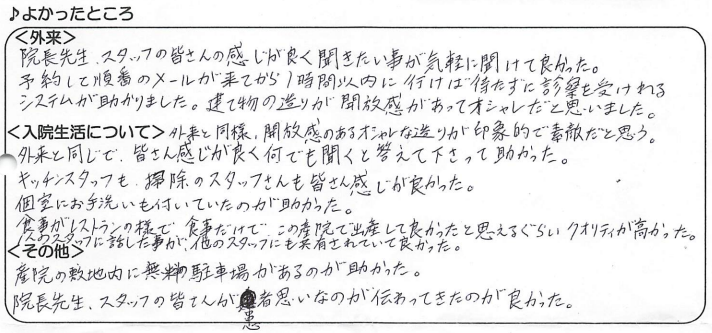 ♪よかったところ
<外来>
院長先生、スタッフの皆さんの感じが良く聞きたい事が気軽に聞けて良かった。
予約して順番のメールが来てから1時間以内に行けば待たずに診察を受けれる
システムが助かりました。建て物の造りが開放感があってオシャレだと思いました。
<入院生活について>外来と同様、開放感のあるオシャレな造りが印象的で素敵だと思う。
外来と同じで、皆さん感じが良く何でも聞くと答えて下さって助かった。
キッチンスタッフも、掃除のスタッフさんも皆さん感じが良かった。
個室にお手洗いも付いていたのが助かった。
食事がレストランの様で、食事だけで、この産院で出産して良かったと思えるぐらいクオリティが高かった。
1人のスタッフに話した事が、他のスタッフにも共有されていて良かった。
<その他>
産院の敷地内に無料の駐車場があるのが助かった。
院長先生、スタッフの皆さんが患者思いなのが伝わってきたのが良かった。